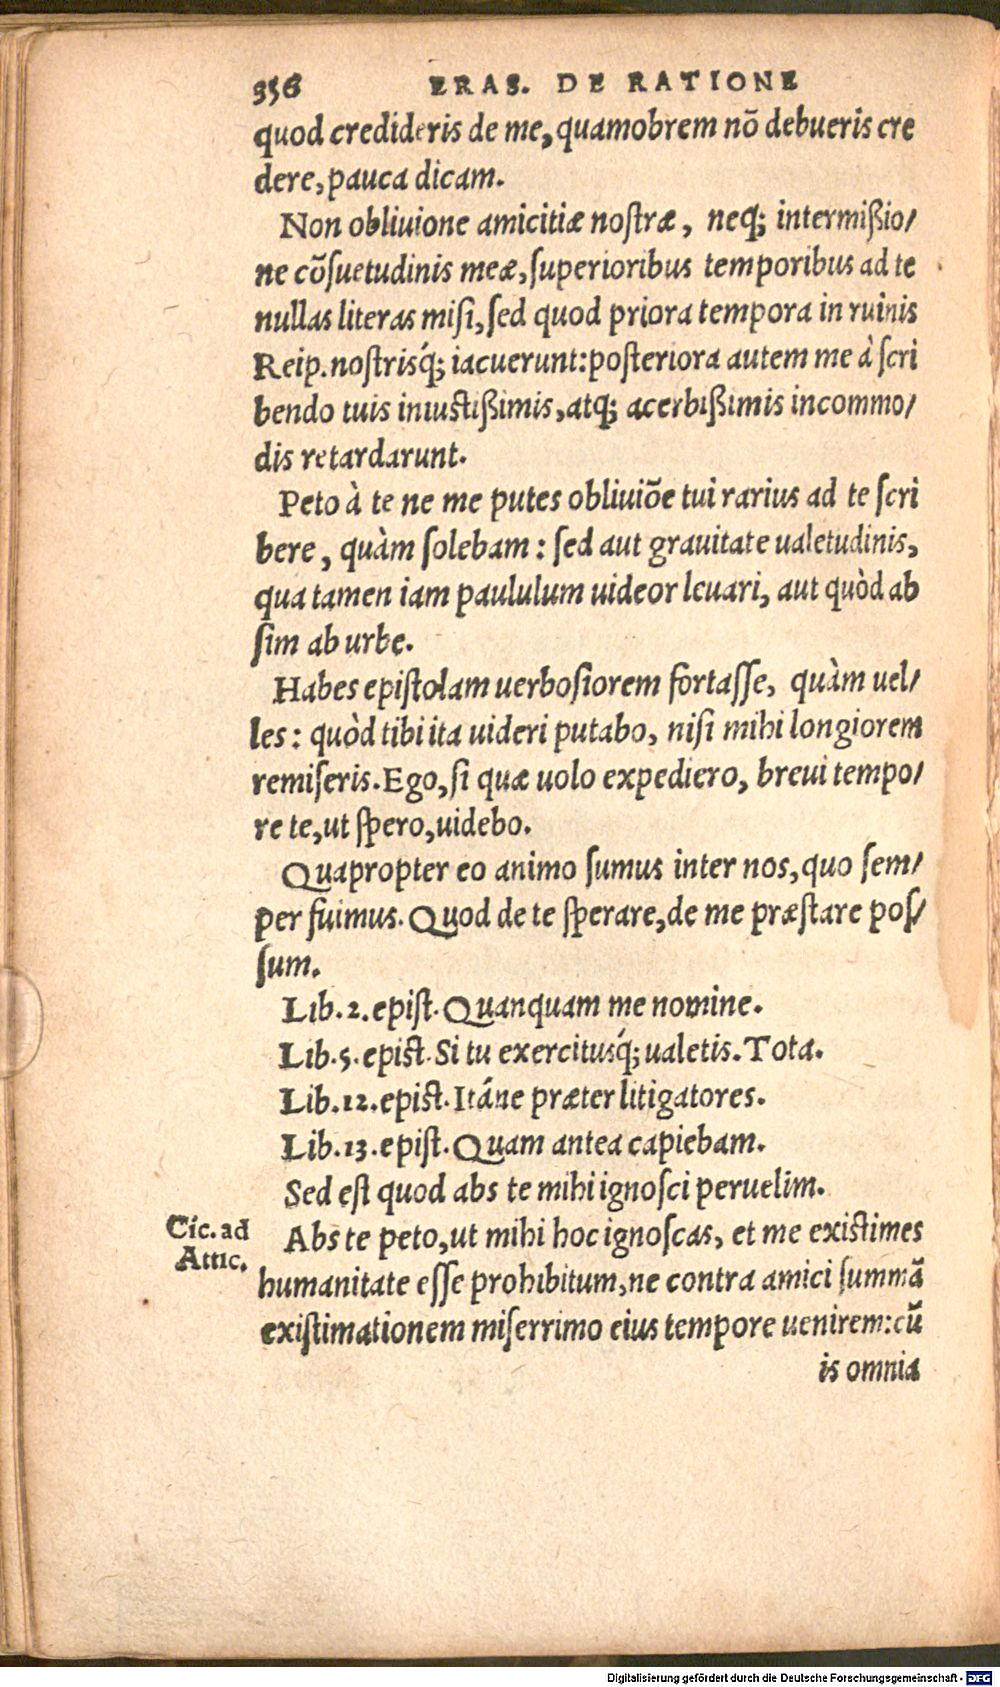 356 ERAS. DE RATIONE
quod credideris de me, quamobrem nō debueris cre
dere, pauca dicam.
Non obliuione amicitiæ nostræ, neq; intermißio/
ne cōsuetudinis meæ, superioribus temporibus ad te
nullas literas misi, sed quod priora tempora in ruinis
Reip. nostrisq́; iacuerunt: posteriora autem me à scri
bendo tuis iniustißimis, atq; acerbißimis incommo/
dis retardarunt.
Peto à te ne me putes obliuiōe tui rarius ad te scri
bere, quàm solebam: sed aut grauitate ualetudinis,
qua tamen iam paululum uideor leuari, aut quòd ab
sim ab urbe.
Habes epistolam uerbosiorem fortasse, quàm uel/
les: quòd tibi ita uideri putabo, nisi mihi longiorem
remiseris. Ego, si quæ uolo expediero, breui tempo/
re te, ut spero, uidebo.
Quapropter eo animo sumus inter nos, quo sem/
per fuimus. Quod de te sperare, de me præstare pos/
sum.
Lib. 2. epist. Quanquam me nomine.
Lib. 5. epist. Si tu exercitusq́; ualetis. Tota.
Lib. 12. epist. Itáne præter litigatores.
Lib. 13. epist. Quam antea capiebam.
Sed est quod abs te mihi ignosci peruelim.
Cic. ad
Attic.
Abs te peto, ut mihi hoc ignoscas, et me existimes
humanitate esse prohibitum, ne contra amici summā
existimationem miserrimo eius tempore uenirem: cū
is omnia
Digitalisierung gefördert durch die Deutsche Forschungsgemeinschaft - DFG